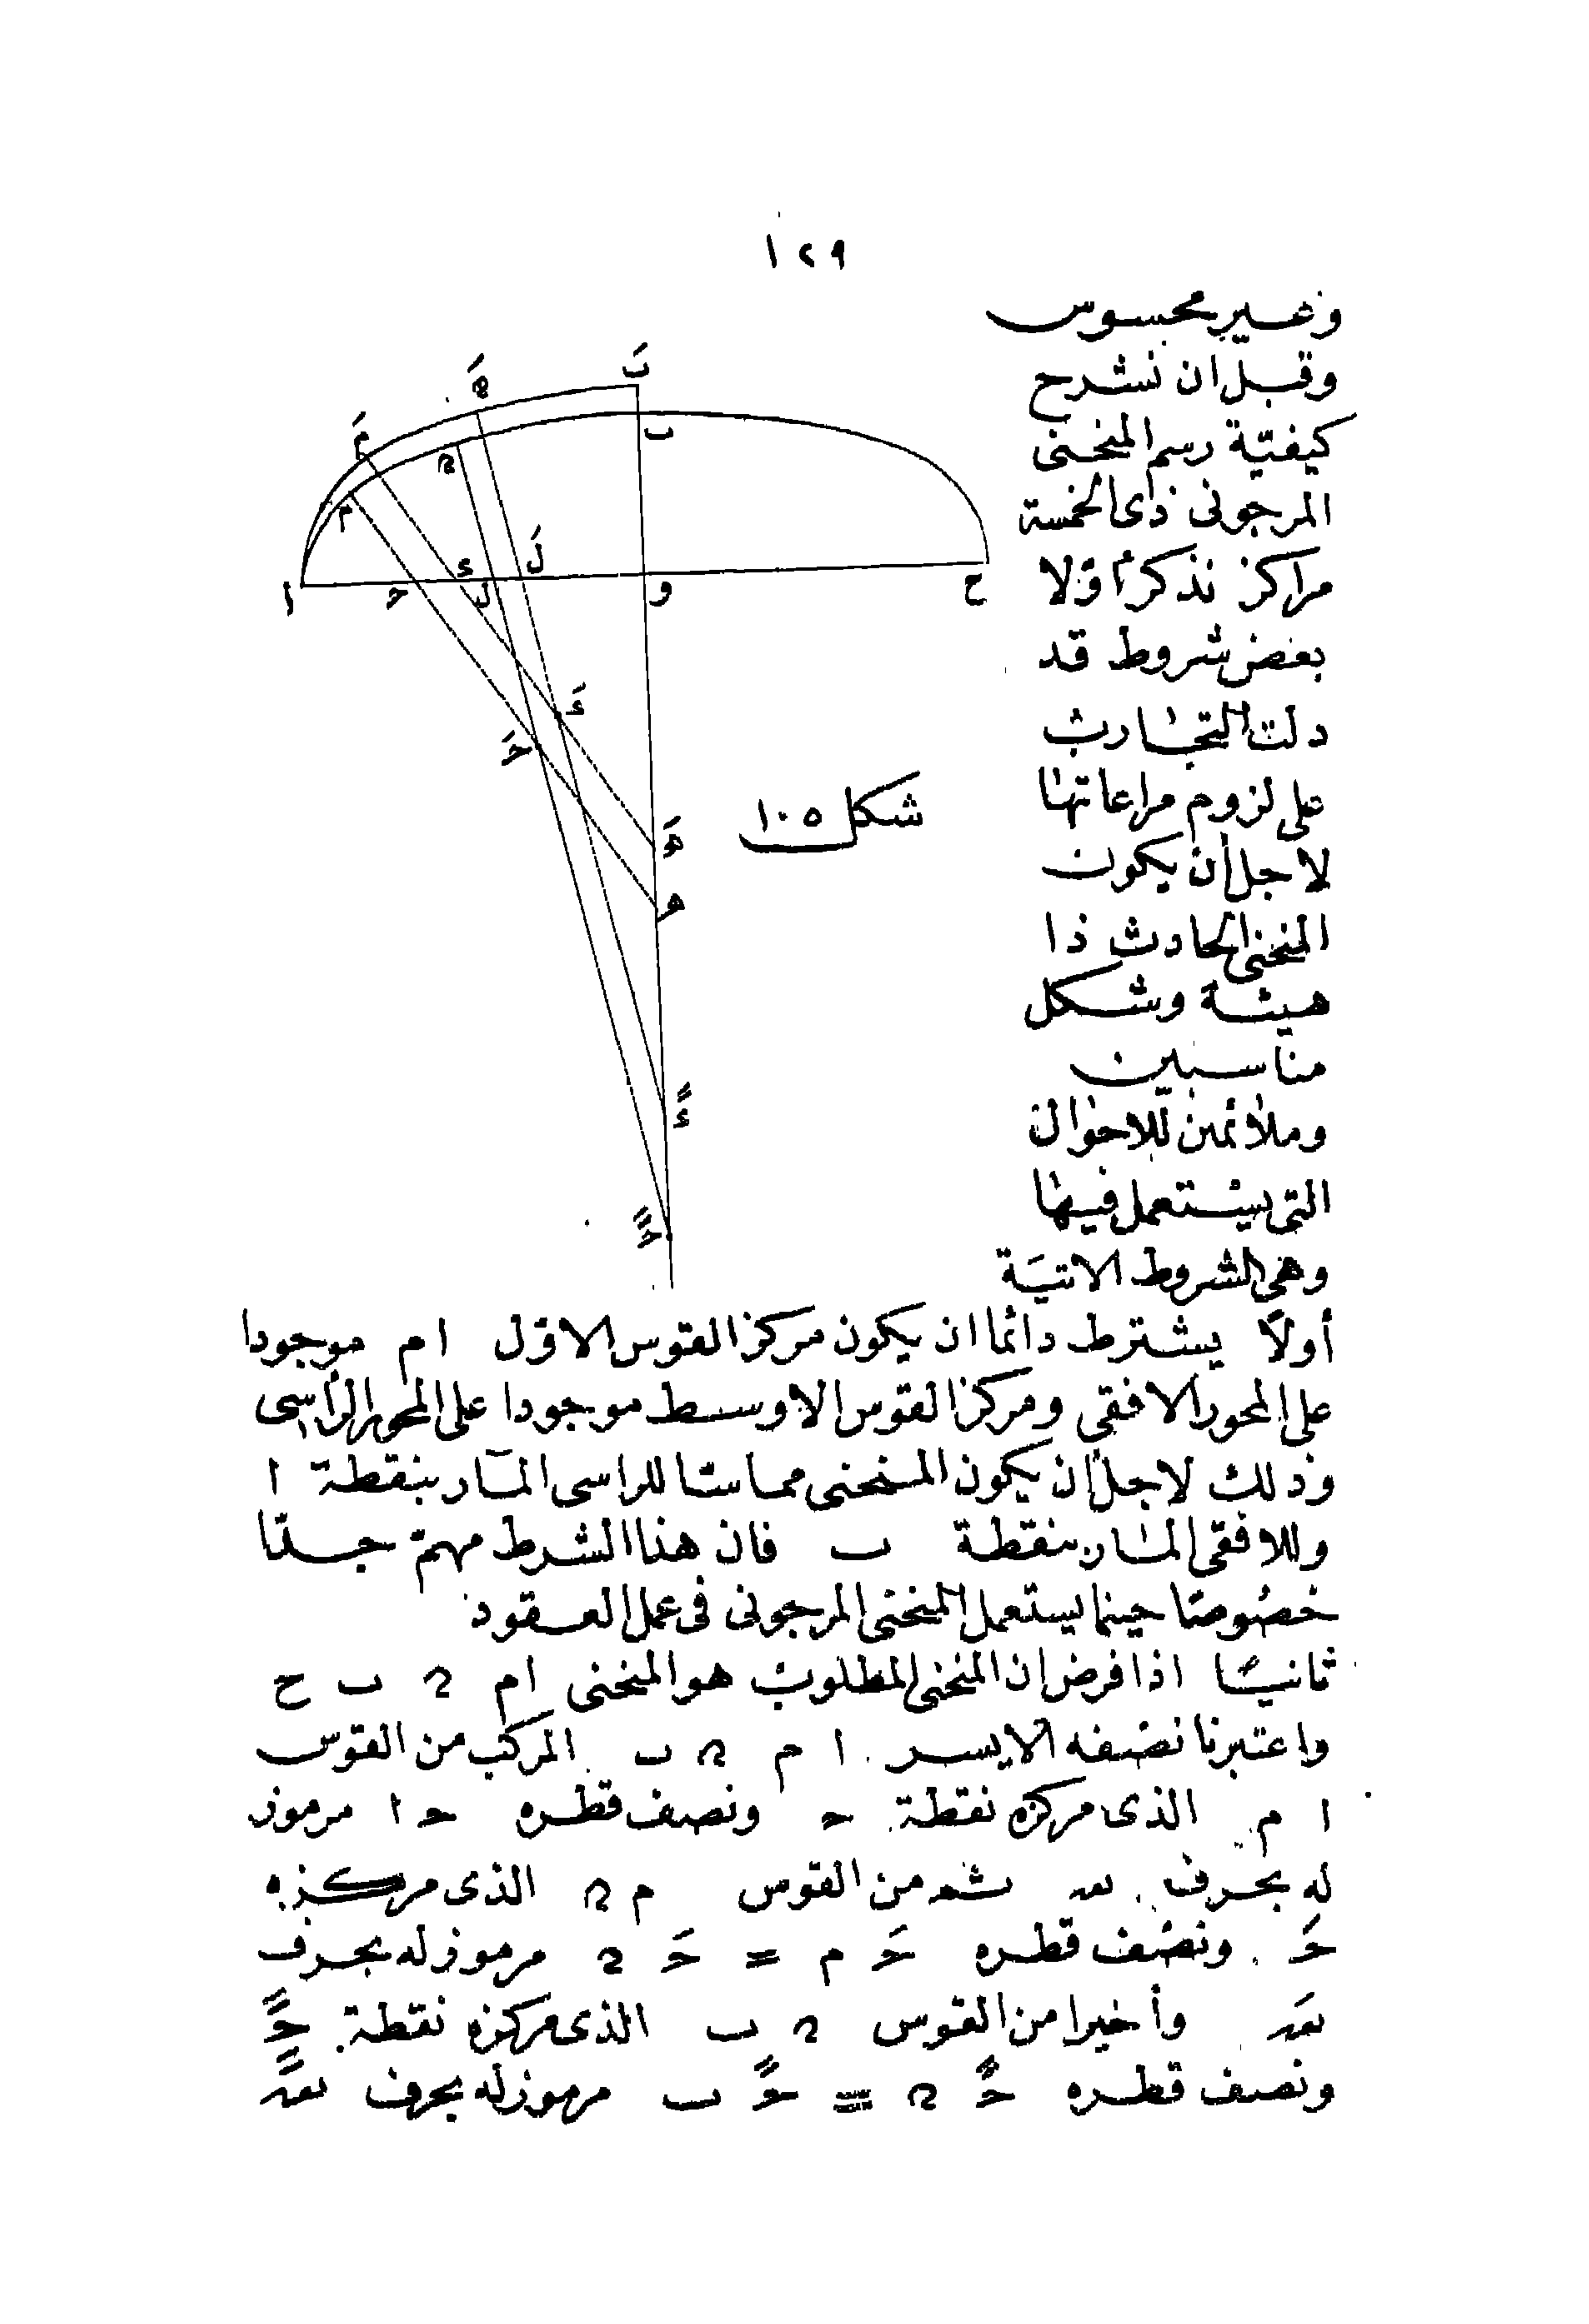 ١٢٩
وغير محسوس
وقبل ان نشرح
كيفيّة رسم المنحنى
المرجونى ذى الخمسة
مراكز نذكر أوّلا
بعض شروط قد
دلت التجارب
على لزوم مراعاتها
لاجل أن يكون
المنحنى الحادث ذا
هيئة وشكل
مناسبين
وملائمين للاحوال
التى يستعمل فيها
وهى الشروط الاتيَة
بَ
ب
مَ
م
ا
ح
د
ل
لَ
و
ح
دَ
حَ
هَ
ه
دً
حً
شكل ١٠٥
أولاً يشترط دائما ان يكون مركز القوس الاوّل ام موجودا
على المحور الافقى ومركز القوس الاوسط موجودا على المحور الرأسى
وذلك لاجل أن يكون المنحنى مماسّا للراسى المآر بنقطة ا
وللافقى المار بنقطة ب فان هذا الشرط مهمّ جدّا
خصُوصًا حينما يستعمل المنحنى المرجونى فى عمل العقود
ثانيًا اذا فرض ان المنحنى المطلوب هو المنحنى ام ن ب ح
واعتبرنا نصفه الايسر ا م ن ب المركب من القوس
ا م الذى مركزه نقطة ح ونصف قطره ح ا مرموز
له بحرف نعه ثم من القوس م ن الذى مركزه
حَ ونصف قطره حَ م = حَ ن مرموز له بحرف
نعَه وأخيرا من القوس ن ب الذى مركزه نقطة حً
ونصف قطره حً ن = حً ب مرموز له بحرف نعًه